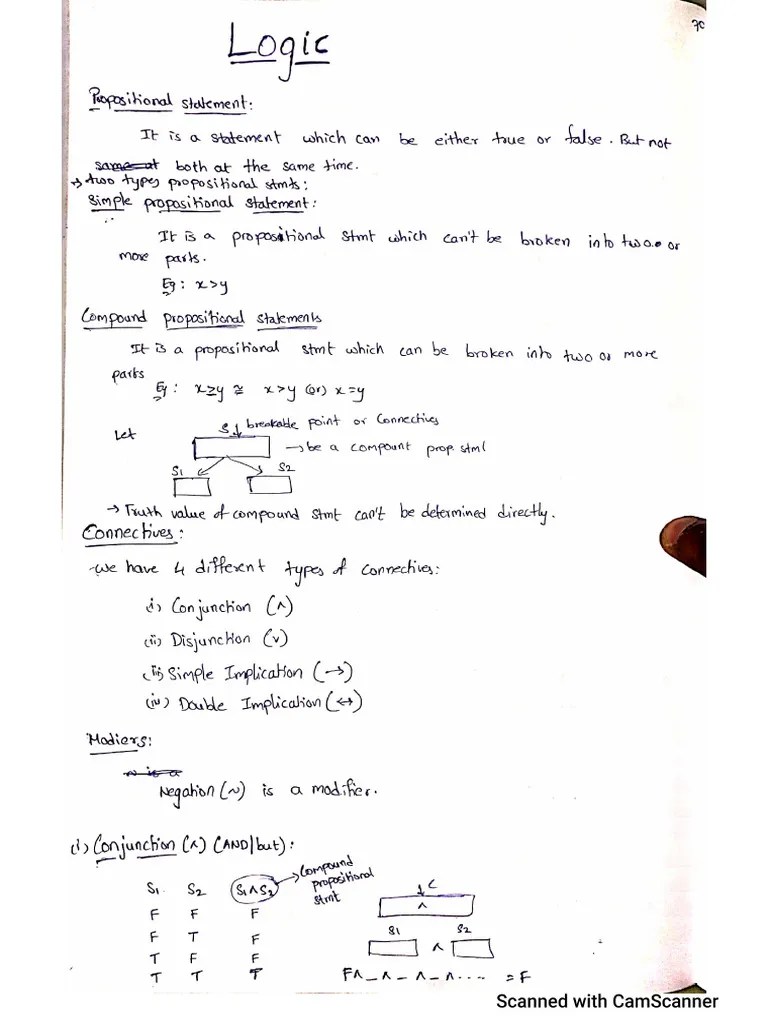 70
Logic
Propositional statement:
It is a statement which can be either true or false. But not
same at both at the same time.
→ two types propositional stmts:
Simple propositional statement:
It is a propositional stmt which can't be broken into two or
more parts.
Eg: x>y
Compound propositional statements
It is a propositional stmt which can be broken into two or more
parts
Eg: x≥y ≅ x>y (or) x=y
Let
S↓ breakable point or Connectives
→ be a compount prop. stml
S1 S2
→ Truth value of compound stmt can't be determined directly.
Connectives:
we have 4 different types of connectives:
(i) Conjunction (∧)
(ii) Disjunction (∨)
(iii) Simple Implication (→)
(iv) Double Implication (↔)
Modiers:
~ is a
Negation (~) is a modifier.
(i) Conjunction (∧) (AND|but):
S1 S2 S1∧S2 → Compound propositional stmt
F F F
F T F
T F F
T T T
↓C
∧
S1 S2
∧
F∧_∧_∧_∧.... = F
Scanned with CamScanner